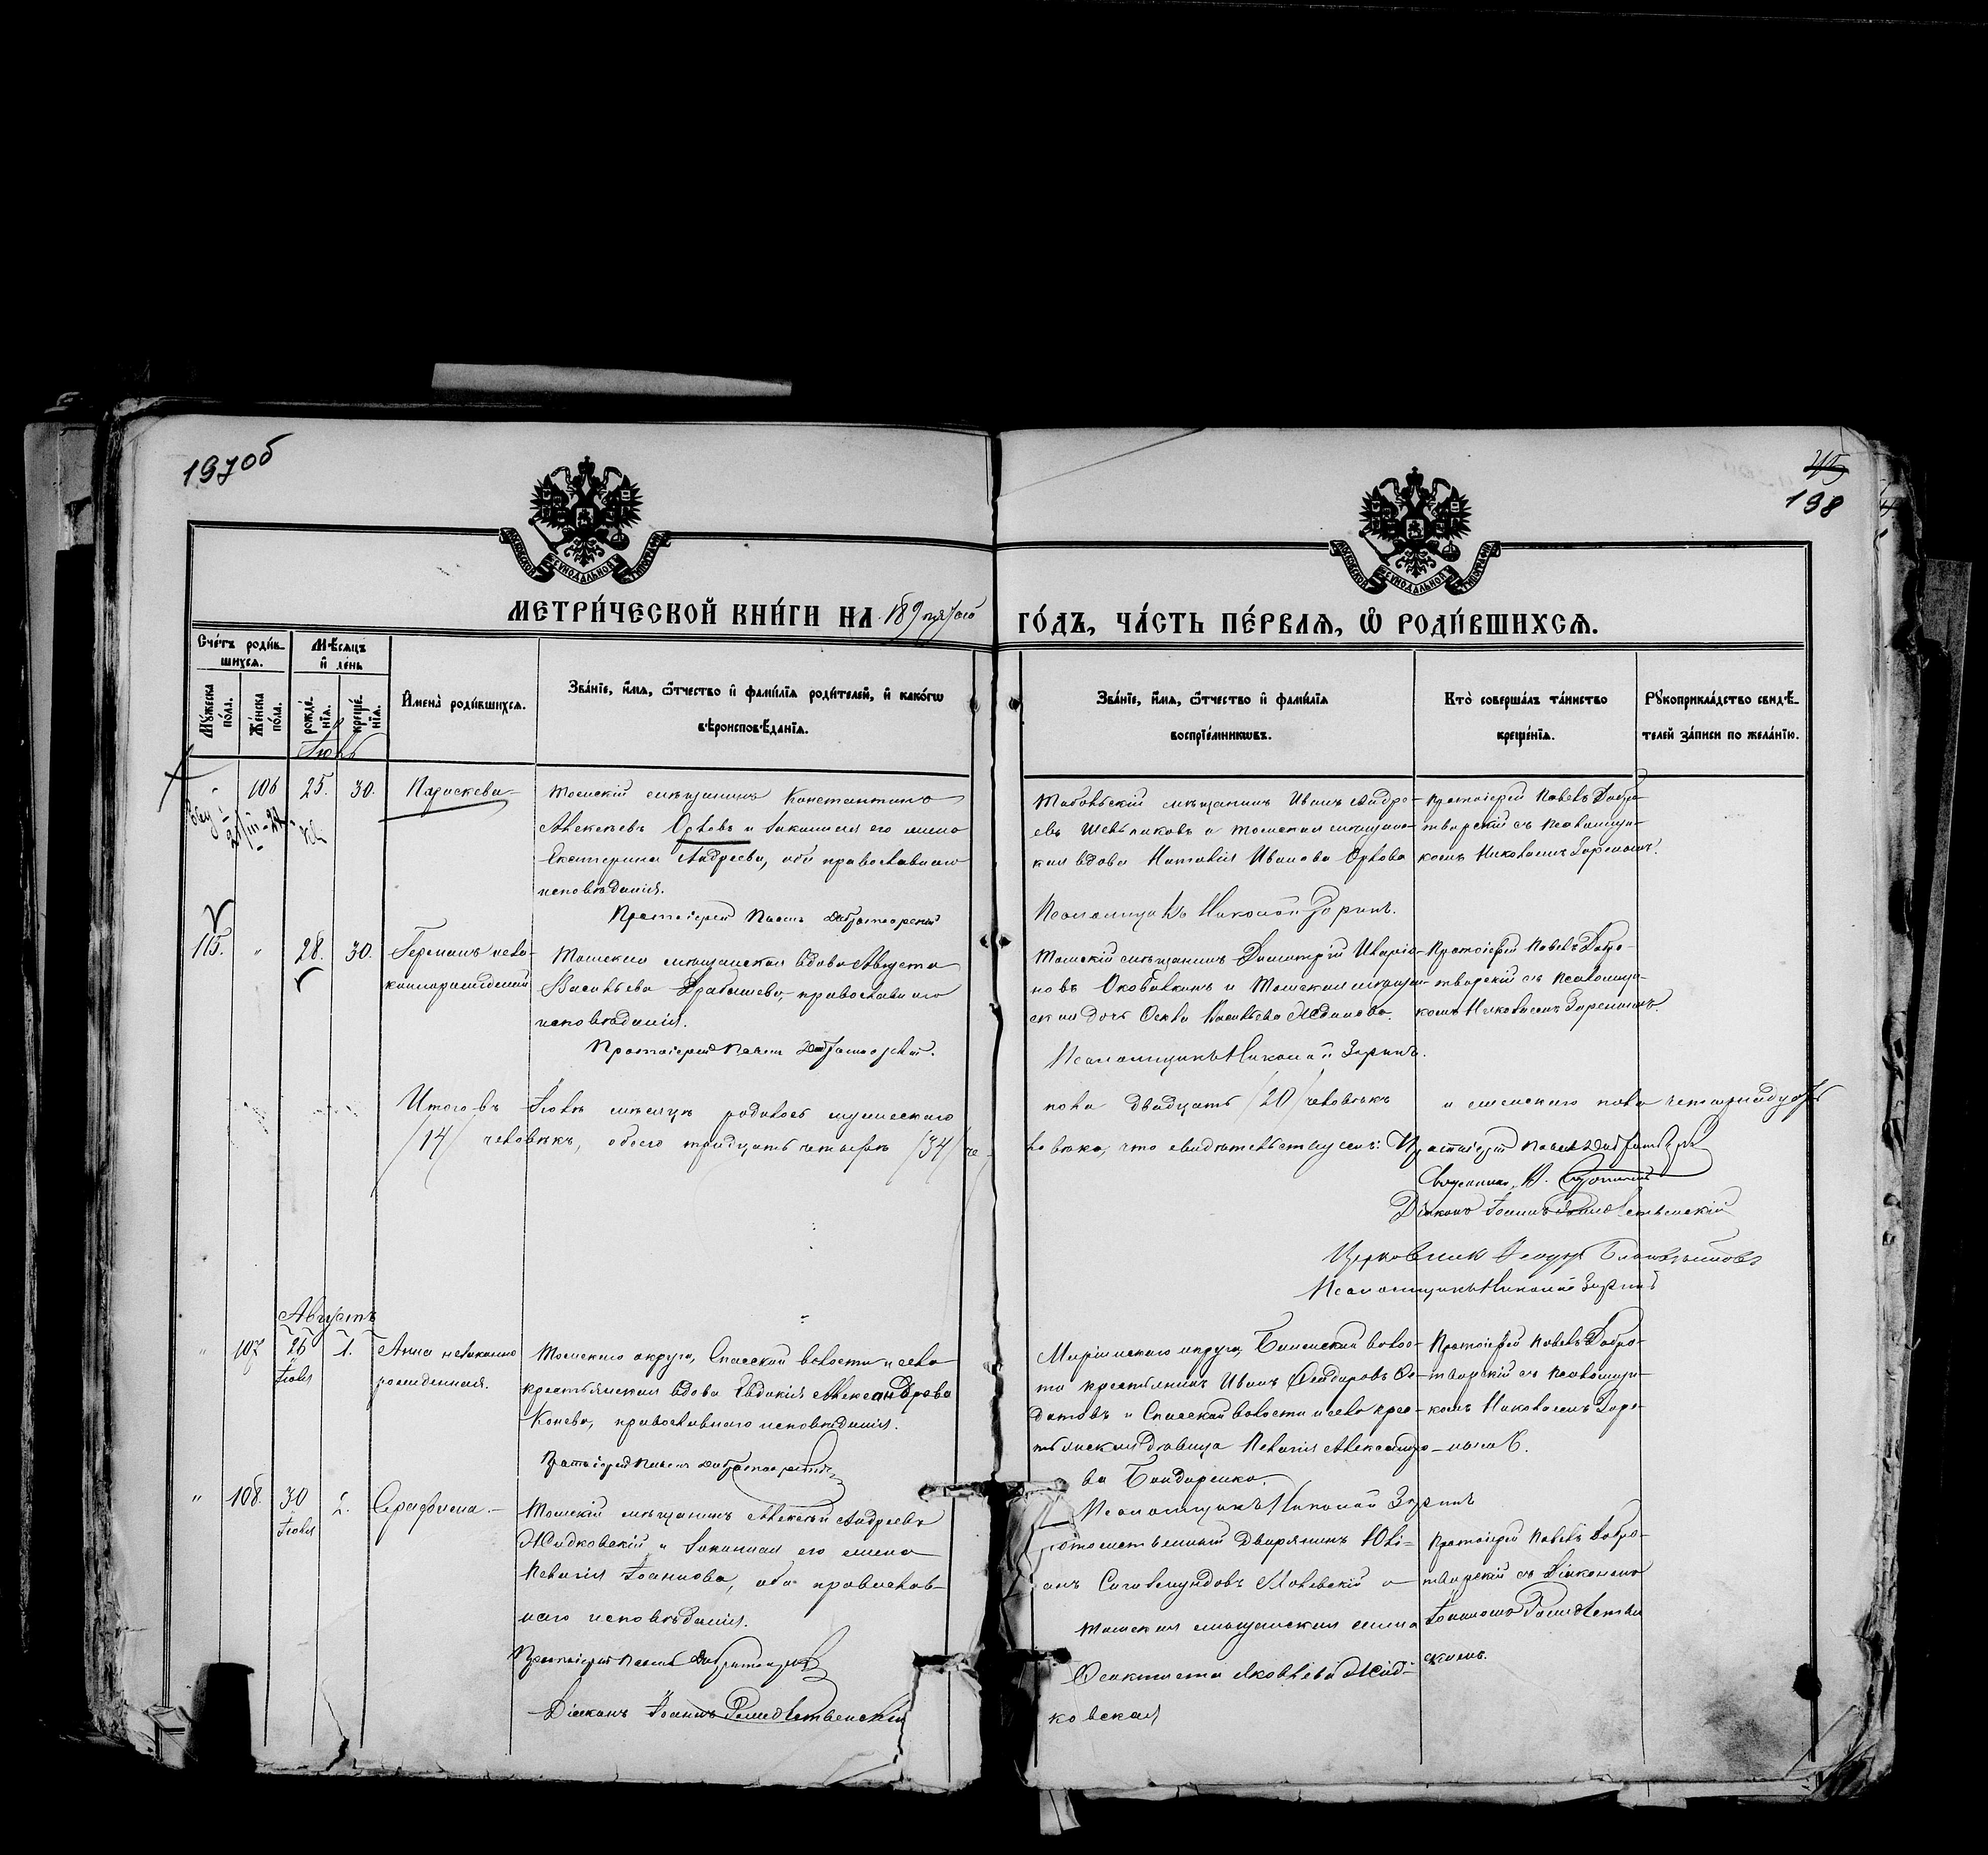 197об
45
198
МОСКОВСКОЙ СѴНОДАЛЬНОЙ ТИПОГРАФІИ
МОСКОВСКОЙ СѴНОДАЛЬНОЙ ТИПОГРАФІИ
МЕТРИ́ЧЕСКОЙ КНИ́ГИ НА 189 пятый ГО́ДЪ, ЧА́СТЬ ПЕ́РВАЯ, Ѽ РОДИ́ВШИХСЯ.
Сче́тъ роди́в-
шихся.
Мѣсяцъ
и҆ де́нь
Мꙋ́жеска по́ла.
Же́нска по́ла.
рожде́нїя.
креще́нїя.
И҆мена̀ роди́вшихся.
Зва́нїе, и҆́мя, ѻ҆́тчество и҆ фами́лїя роди́телей, и҆ како́гѡ
вѣроисповѣ́данїя.
Зва́нїе, и҆́мя, ѻ҆́тчество и҆ фами́лїя
воспрїе́мникѡвъ.
Кто̀ соверша́лъ та́инство
креще́нїя.
Рꙋкоприкла́дство свидѣ́-
телей за́писи по жела́нїю.
Іюль
106 25. 30. Параскева
Томскій мѣщанинъ Константинъ
Алексѣевъ Орловъ и законная его жена
Екатерина Андреева, оба православнаго
исповѣданія.
Протоіерей Павелъ Добротворскій
Тобольскій мѣщанинъ Иванъ Андре-
евъ и Томская мѣщанс-
кая вдова Наталія Иванова Орлова
Псаломщикъ Николай Заринъ.
Протоіерей Павелъ Добро-
творскій съ псаломщи-
комъ Николаемъ Заринымъ.
115. " 28. 30. Германъ неза-
коннорожденный
Томская мѣщанская вдова Августа
Васильева православнаго
исповѣданія.
Протоіерей Павелъ Добротворскій.
Томскій мѣщанинъ Димитрій Иларіо-
новъ и Томская мѣщан-
ская дочь Васильева Жданова.
Псаломщикъ Николай Заринъ.
Протоіерей Павелъ Добро-
творскій съ псаломщи-
комъ Николаемъ Заринымъ.
Итого въ Іюлѣ мѣсяцѣ родилось мужескаго пола двадцать /20/ человѣкъ и женскаго пола четырнадцать
/14/ человѣкъ, обоего тридцать четыре /34/ че- ловѣка, что свидѣтельствуемъ: Протоіерей Павелъ Добротворскій
Священникъ
Діаконъ Іоаннъ Рождественскій
Церковникъ
Псаломщикъ Николай Заринъ
Августъ
" 107 26 Іюля 1. Анна незаконно
рожденная.
Томскаго округа, Спасской волости и села
крестьянская вдова Евдокія Александрова
Конева, православнаго исповѣданія.
Протоіерей Павелъ Добротворскій
Маріинскаго округа, волос-
ти крестьянинъ Иванъ
и Спасской волости и села крес-
тьянская дѣвица Пелагія Александро-
ва Бондаренко.
Псаломщикъ Николай Заринъ
Протоіерей Павелъ Добро-
творскій съ псаломщи-
комъ Николаемъ Зари-
нымъ.
" 108. 30 Іюля 2. Серафима.
Томскій мѣщанинъ Алексѣй Андреевъ
Жидковскій и законная его жена
Пелагія Іоаннова, оба православ-
наго исповѣданія.
Протоіерей Павелъ Добротворскій
Діаконъ Іоаннъ Рождественскій
Потомственный Дворянинъ Юлі-
анъ и
Томская мѣщанская жена
Ѳеоктиста Яковлева Жид-
ковская
Протоіерей Павелъ Добро-
творскій съ Діакономъ
Іоанномъ Рождествен-
скимъ.